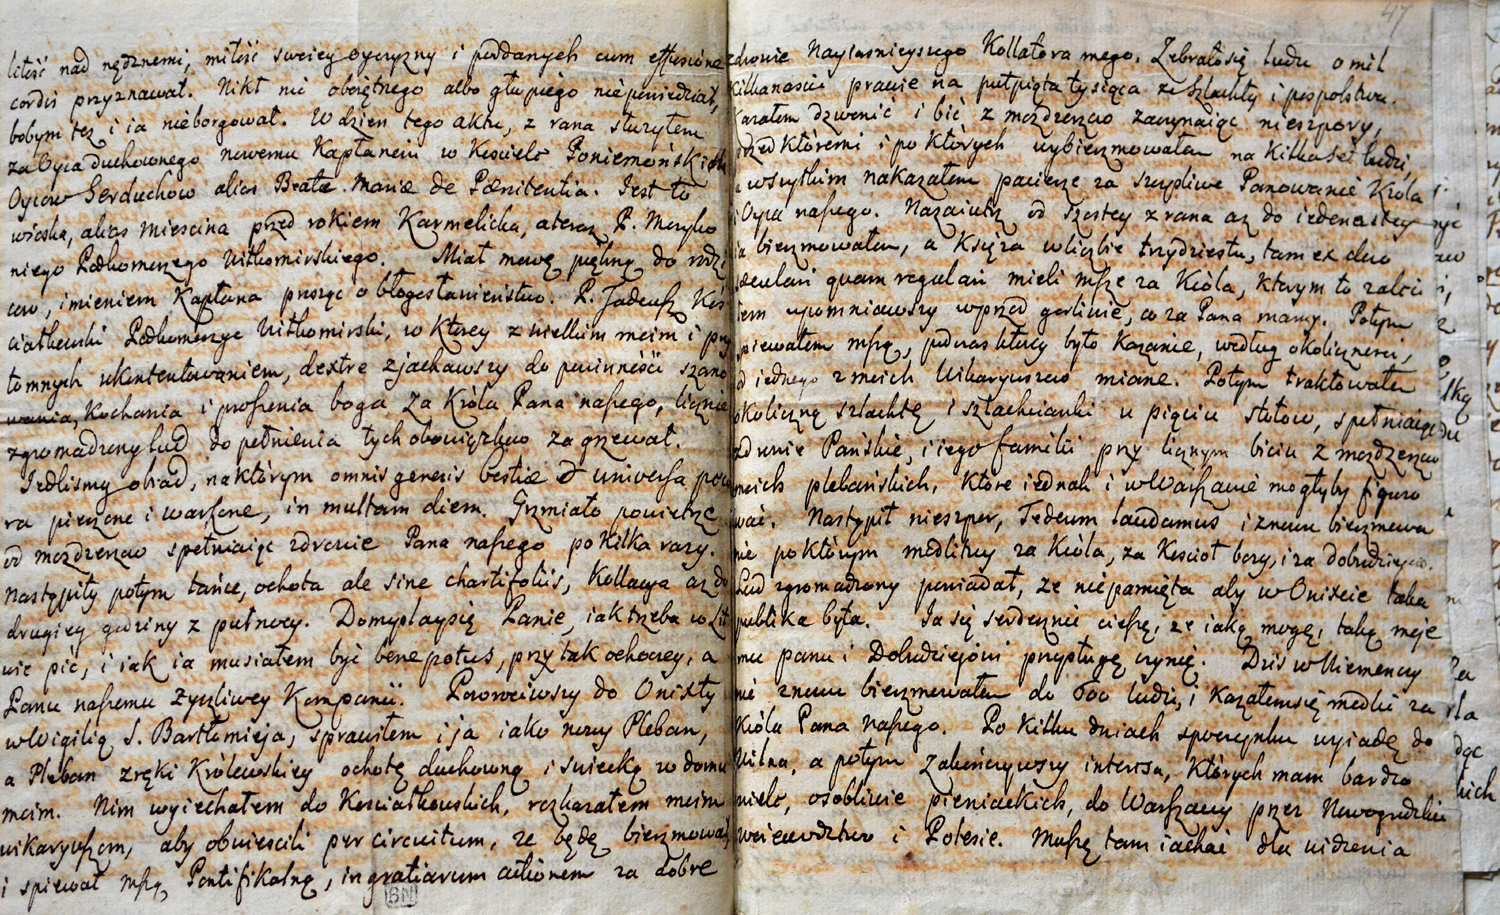 litość nad nędznemi, miłość swoiey oyczyzny i poddanych cum effusione
cordis przyznawał. Nikt nic oboiętnego albo głupiego niepowiedział,
bobym też i ia nieborgował. W dzien tego aktu, z rana służyłem
za Oyca duchownego nowemu Kapłanowi w Kosciele Poniemońskich
Oycow Serduchow alias Beatæ Mariæ de Pœnitentia. Jest to
wioska, alias miescina przed rokiem Karmelicka, a teraz P.
niego Podkomorzego Wiłkomirskiego. Miał mowę piękną do rodzi
cow, imieniem Kapłana prosząc o błogosławieństwo. P. Tadeusz Koś
ciałkowski Podkomorzyc Wiłkomirski, w ktorey z wielkim moim i przy
tomnych ukontentowaniem, dextre zjachawszy do powinności szano
wania, Kochania i proszenia boga za Króla Pana naszego, licznie
zgromadzony lud do pełnienia tych obowiązkow zagrzewał.
Jedliśmy obiad, na którym omnis generis bestiæ & universa pecu
ra pieczone i warzone, in multam diem. Grzmiało powietrze
od mozdzerzow spełniaiąc zdrowie Pana naszego po kilka razy.
Nastąpiły potym tańce, ochota ale sine chartifoliis, Kollacya aż do
drugiey godziny z pułnocy. Domyslaysię Panie, iak trzeba w Lit
wie pić, i iak ia musiałem być bene potus, przy tak ochoczey, a
Panu naszemu życzliwey Kompanii. Powrociwszy do Onixzty
w Wigilią S. Bartłomieja, sprawiłem i ja iako nowy Pleban,
a Pleban z ręki Królewskiey ochotę duchowną i swiecką w domu
moim. Nim wyiechałem do Kosciałkowskich, rozkazałem moim
wikaryuszom, aby obwiescili per circuitum, że będę bierzmował
i spiewał mszą Pontifikalną, in gratiarum actionem za dobre
BN
47
zdrowie Nayiasnieyszego Kollatora mego. Zebrałosię ludu o mil
Kilkanascie prawie na pułpięta tysiąca ze szlachty i pospolstwa.
Kazałem dzwonić i bić z mozdzerzow zaczynaiąc nieszpory,
przed któremi i po których wybierzmowałem na Kilkaset ludzi,
a wszytkim nakazałem pacierze za szczęsliwe Panowanie Króla
i Oyca naszego. Nazaiutrz od szostey z rana aż do iedenastey
ia bierzmowałem, a Księża w liczbie trzydziestu, tam ex clero
seculari quam regulari mieli mszę za Króla, ktorym to zalecił
iem upomniawszy wprzod gorliwie, co za Pana mamy. Potym
spiewałem mszą, podczas ktorey było Kazanie, według okoliczności,
od iednego z moich Wikaryuszow miane. Potym traktowałem
okoliczną szlachtę i szlachcianki u pięciu stołow, spełniaiąc
zdrowie Pańskie, i iego familii przy licznym biciu z mozdzerzow
moich plebańskich, które iednak i w Warszawie mogłyby figuro
wać. Nastąpił nieszpor, Tedeum laudamus i znowu bierzmowa
nie po którym modlitwy za Króla, za Kosciół bozy, i za dobrodzieyow.
Lud zgromadzony powiadał, że niepamięta aby w Onixcie taka
publika była. Ja się serdecznie cieszę, ze iaką mogę, taką moje
mu panu i Dobrodziejowi przysługę czynię. Dzis w Niemency
nie znowu bierzmowałem do 600 ludzi, i kazałemsię modlić za
Króla Pana Naszego. Po kilku dniach spoczynku wyiadę do
Wilna, a potym zakończywszy interesa, których mam bardzo
wiele, osobliwie pieniackich, do Warszawy przez Nowogrodzkie
woiewodztwo i Polesie. Muszę tam iachać dla widzenia